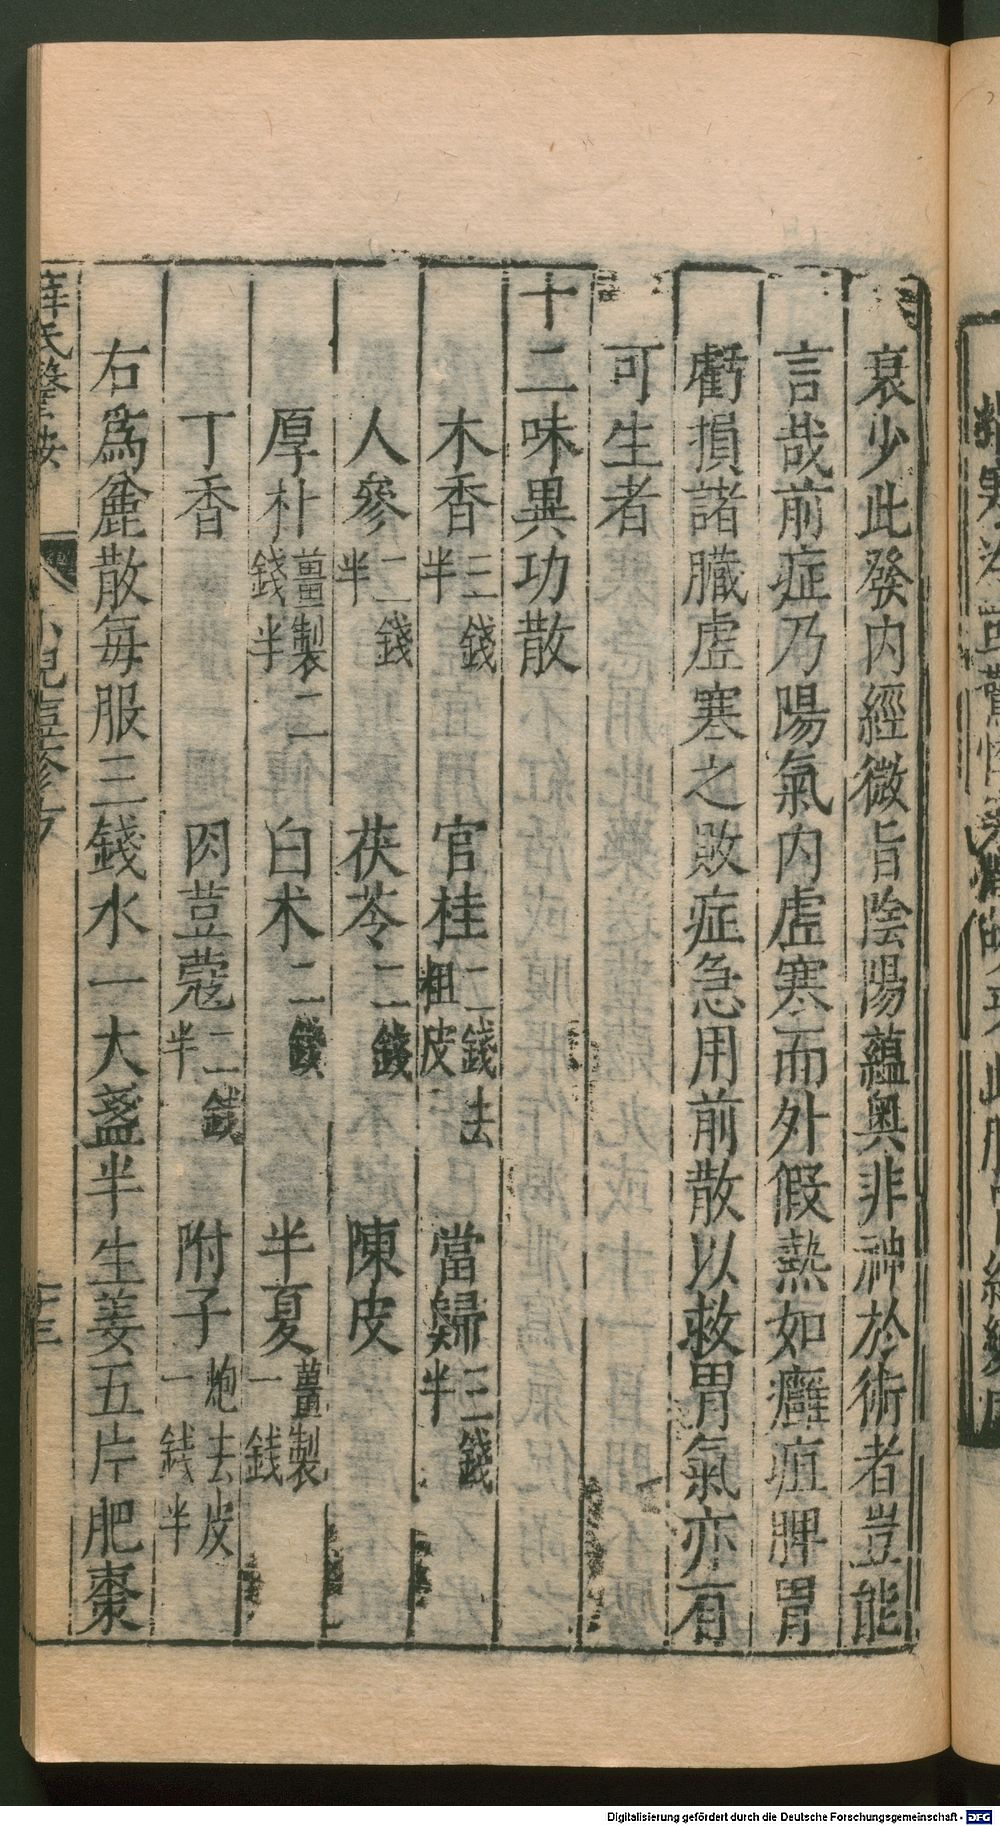 衰少此發内經微旨陰陽蘊奥非神於術者豈能
言哉前症乃陽氣内虛寒而外假熱如癰疽脾胃
虧損諸臟虛寒之敗症急用前散以救胃氣亦有
可生者
十二味異功散
木香三錢半 官桂二錢去粗皮 當歸三錢半
人參二錢半 茯苓二錢 陳皮
厚朴薑製二錢半 白术二錢 半夏薑製一錢
丁香 肉荳蔻二錢半 附子炮去皮一錢半
右爲麄散每服三錢水一大盞半生姜五片肥棗
薛氏醫按
Digitalisierung gefördert durch die Deutsche Forschungsgemeinschaft - DFG